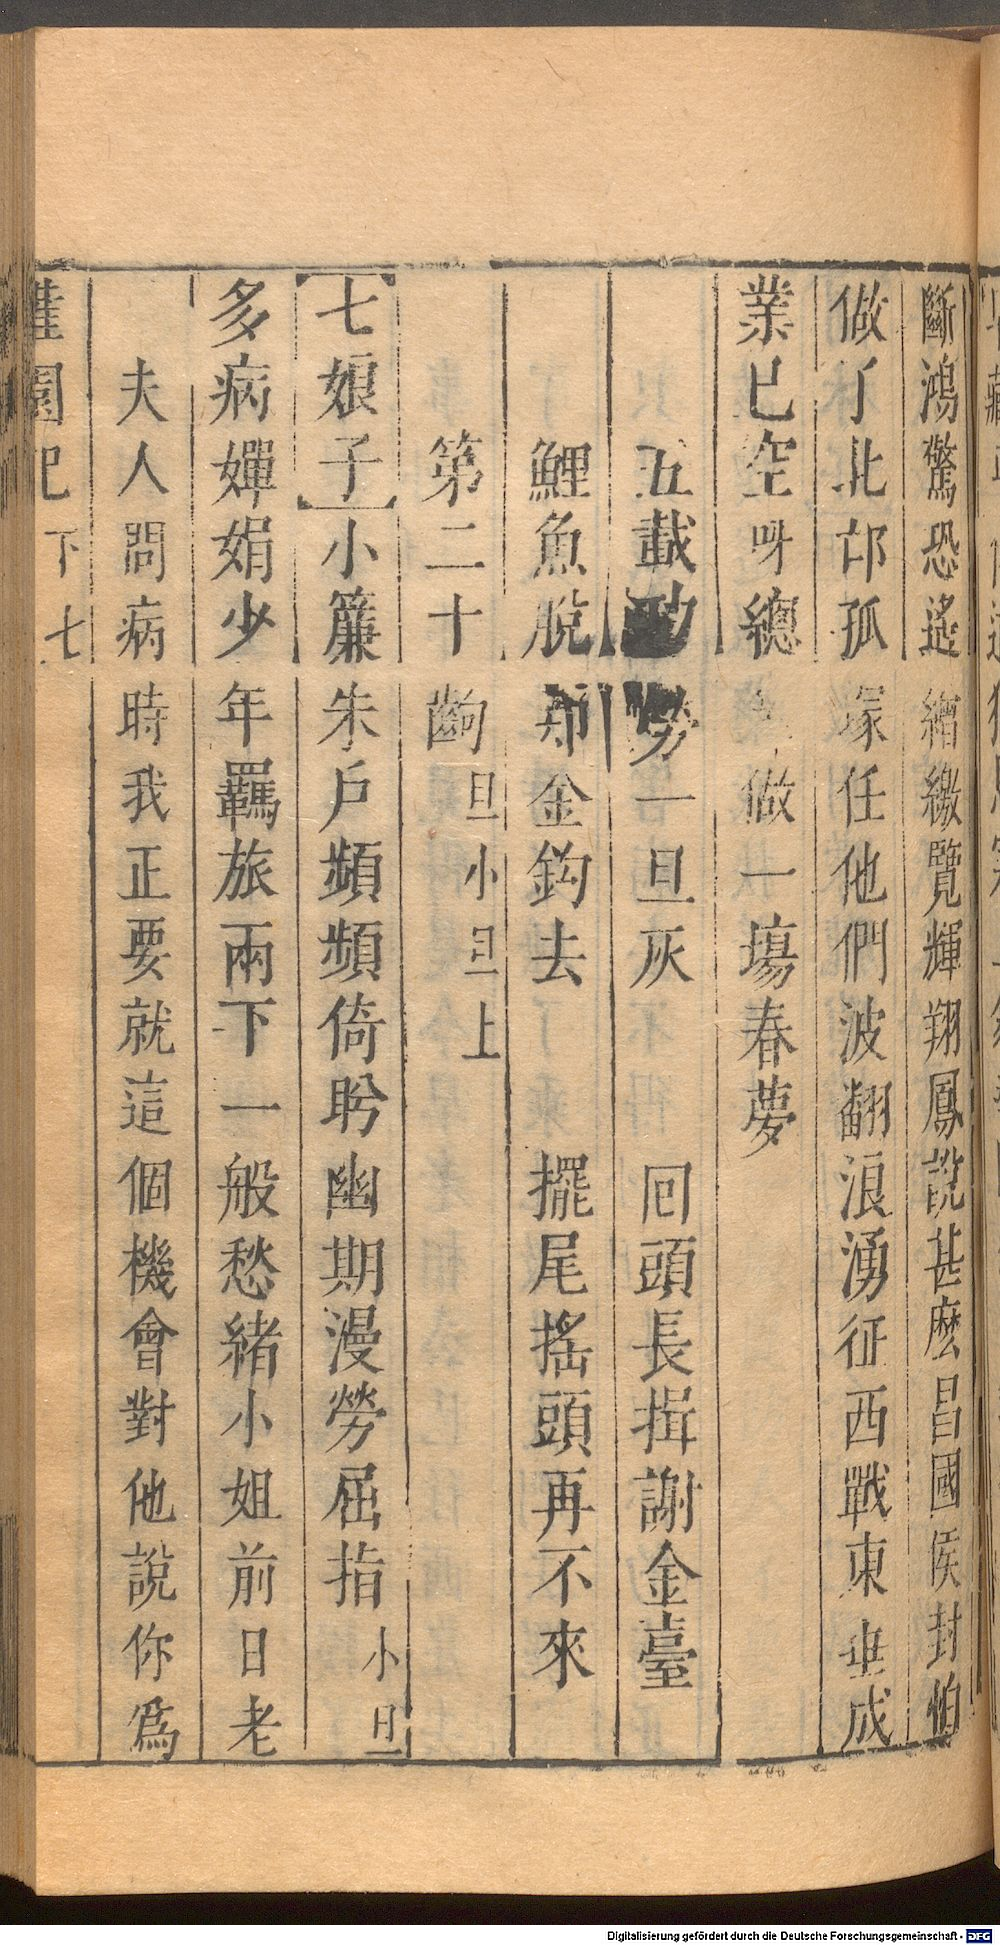 斷鴻驚恐遙繒繳覽輝翔鳳說甚麽昌國侯封伯
做了北邙孤塚任他們波翻浪湧征西戰東垂成
業已空呀總做一塲春夢
五載功勞一旦灰 囘頭長揖謝金臺
鯉魚脫却金鈎去 擺尾搖頭再不來
第二十齣旦小旦上
【七娘子】小簾朱戶頻頻倚盻幽期漫勞屈指小旦
多病嬋娟少年羈旅兩下一般愁緒小姐前日老
夫人問病時我正要就這個機會對他說你爲
園記 下 七
Digitalisierung gefördert durch die Deutsche Forschungsgemeinschaft - DFG